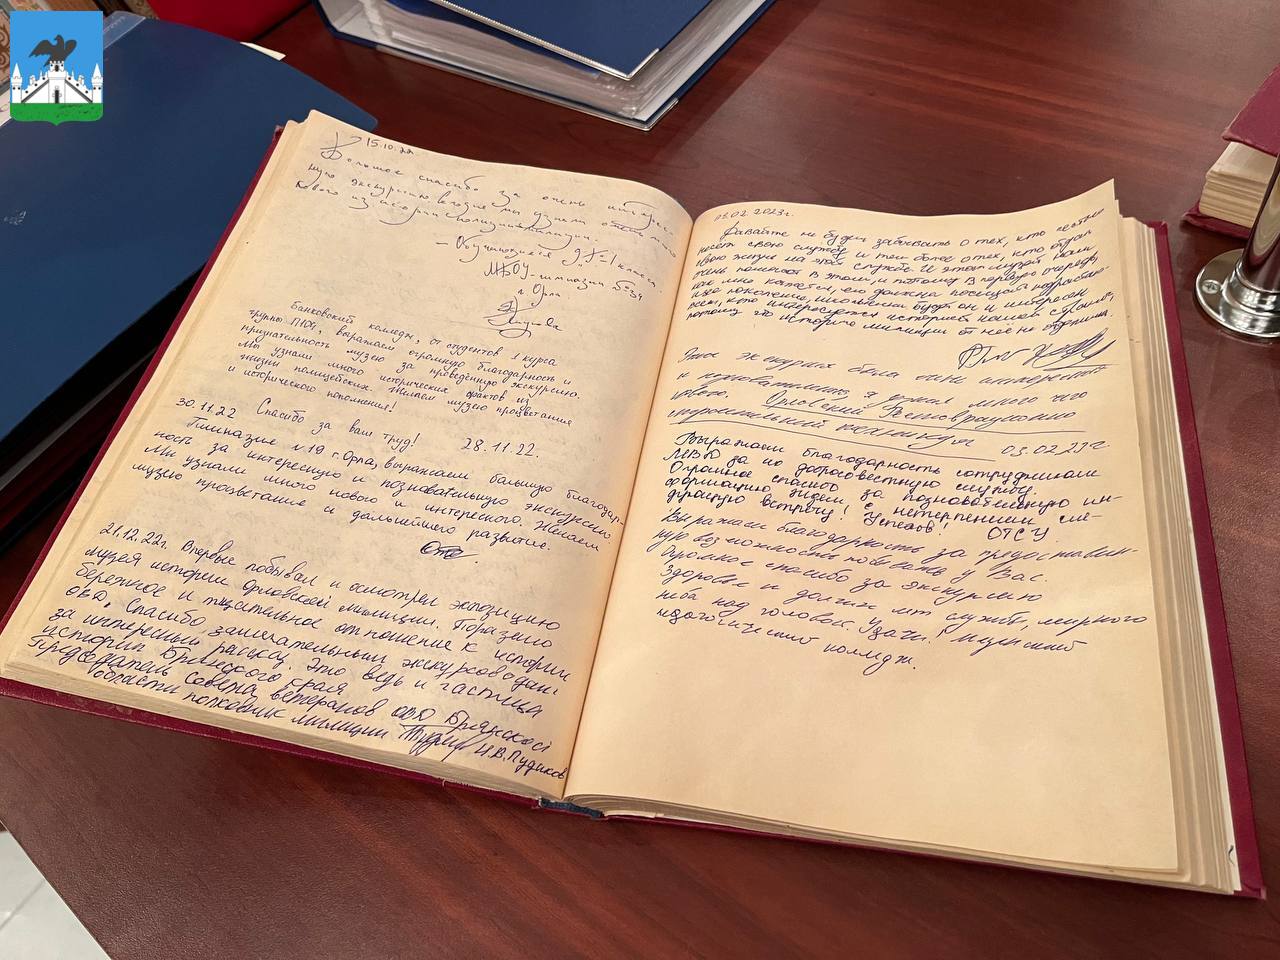 15.10.22
Большое спасибо за очень интерес-
ную экскурсию. Сегодня мы узнали
нового из истории
– Обучающиеся 9 класса
МБОУ-гимназии №34
г. Орла
Банковский колледж, от студентов 1 курса
группы выражаем огромную благодарность и
признательность музею за проведённую экскурсию.
Мы узнали много исторических фактов из
жизни полицейских. Желаем музею процветания
и исторического пополнения!
Спасибо за ваш труд! 28.11.22.
30.11.22
Гимназия №19 г. Орла, выражаем большую благодар-
ность за интересную и познавательную экскурсию.
Мы узнали много нового и интересного. Желаем
музею процветания и дальнейшего развития.
21.12.22г. Впервые побывал и осмотрел экспозицию
музея истории Орловской милиции. Поразило
бережное и тщательное отношение к истории
ОВД. Спасибо замечательным экскурсоводам
за интересный рассказ. Это ведь и частица
истории Брянского края
Председатель совета ветеранов ОВД Брянской
области полковник милиции Н.В. Пудиков
03.02.2023г.
Давайте не будем забывать о тех, кто честно
несёт свою службу и тем более о тех, кто отдал
свою жизнь на этой службе. И этот музей нам
очень помогает в этом, и потому в первую очередь,
как мне кажется, его должно посещать подрастаю-
щее поколение, школьники будет он и интересен
всем, кто интересуется историей нашей страны,
потому что историю милиции от неё не отделишь.
Эта экскурсия была очень интересной
и познавательной, я узнал много чего
нового. Орловский
строительный техникум 03.02.23г
Выражаем благодарность сотрудникам
МВД за их добросовестную службу.
Огромное спасибо за познавательную ин-
формацию. Ждем с нетерпением сле-
дующую встречу! Успехов! ОТСУ
Выражаем благодарность за предоставлен-
ную возможность побывать у Вас.
Огромное спасибо за экскурсию
Здоровья и долгих лет службы, мирного
неба над головой. Удачи! Мценский
педагогический колледж.